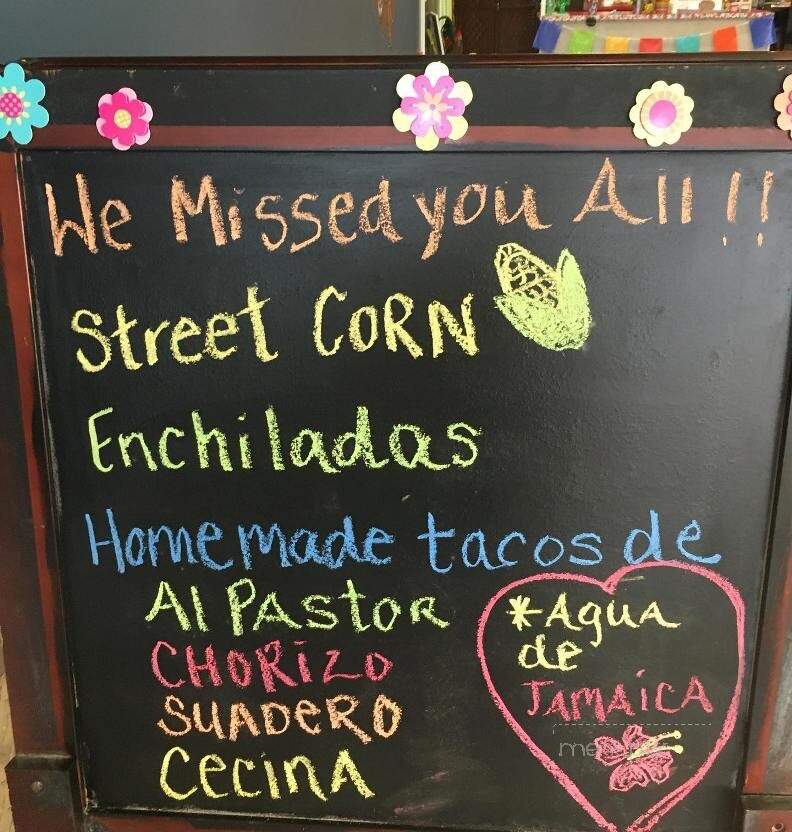 We Missed you All !!
Street CORN
Enchiladas
Homemade tacos de
Al PAStOR
CHORIZO
SUADERO
CeCiNA
*AgUA
de
JAMAiCA